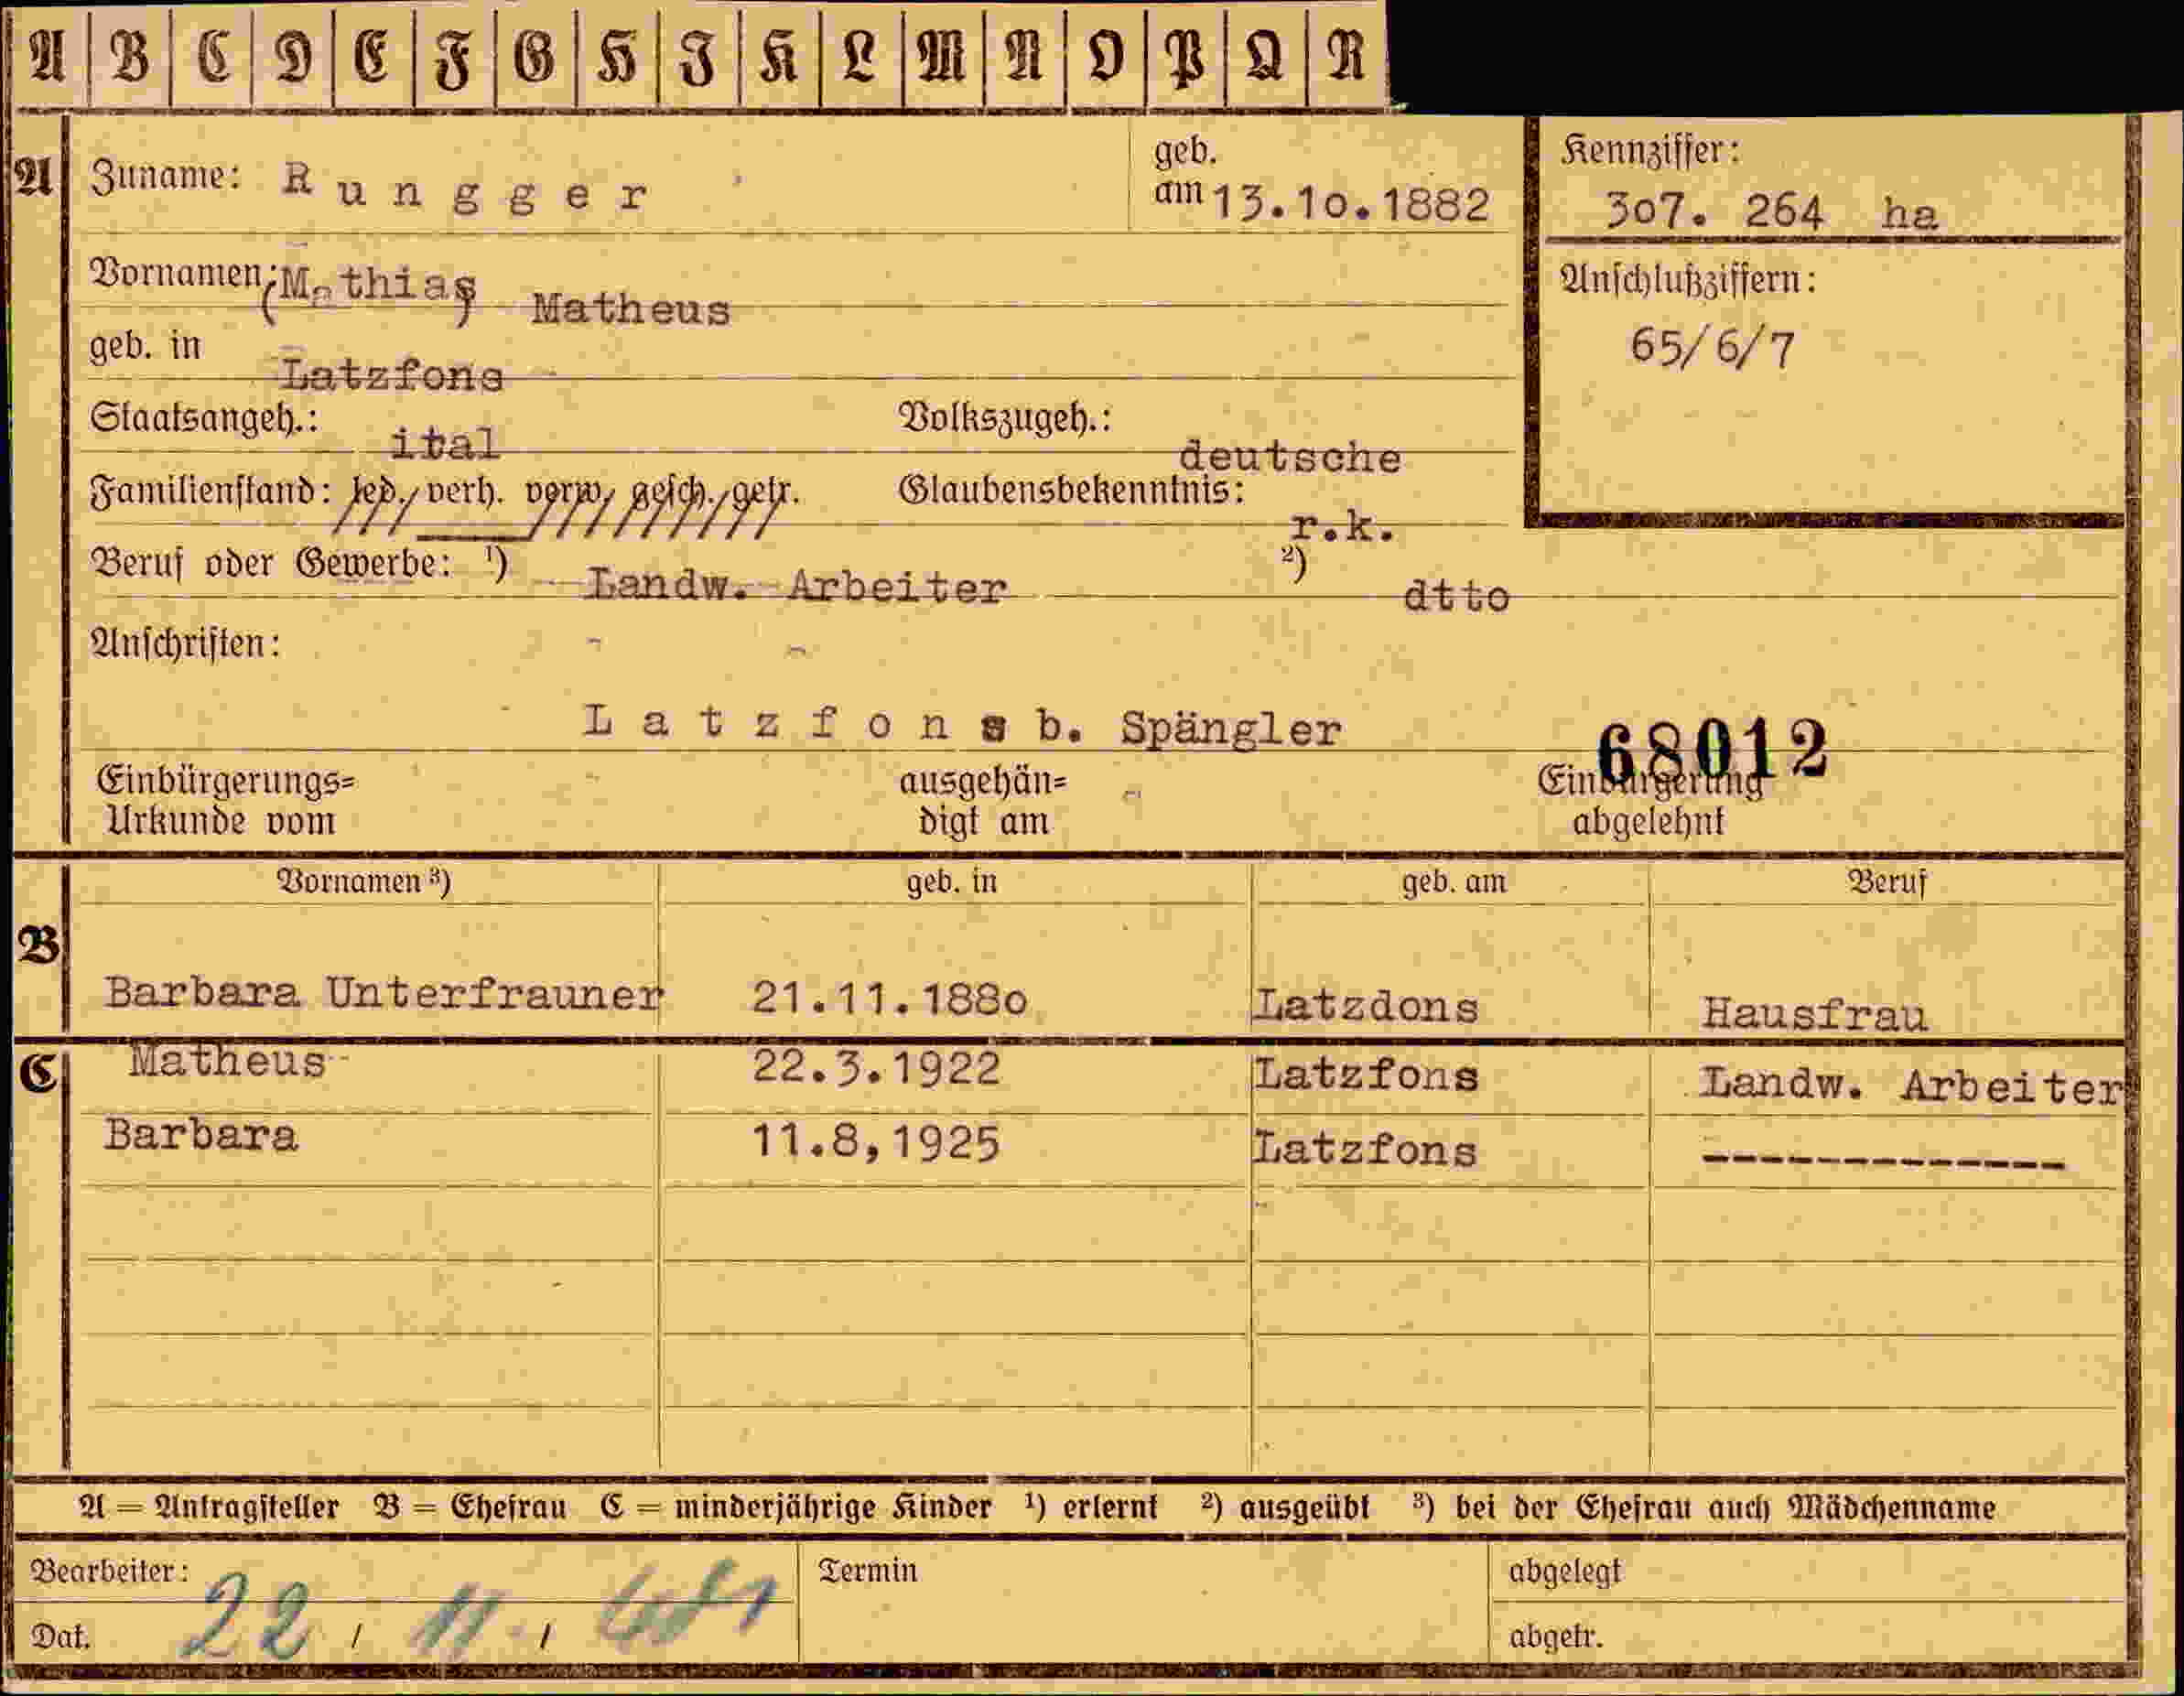 A B C D E F G H I K L M N O P Q R
A Zuname: Rungger geb. am 13.10.1882
Kennziffer: 307. 264 ha
Vornamen: (Mathias) Matheus
Anschlußziffern: 65/6/7
geb. in Latzfons
Staatsangeh.: ital Volkszugeh.: deutsche
Familienstand: led., verh. verw, gesch., getr. Glaubensbekenntnis: r.k.
Beruf oder Gewerbe: ¹) Landw. Arbeiter ²) dtto
Anschriften:
Latzfons b. Spängler 68012
Einbürgerungs= ausgehän= Einbürgerung
Urkunde vom digt am abgelehnt
Vornamen ³) geb. in geb. am Beruf
B Barbara Unterfrauner 21.11.1880 Latzdons Hausfrau
C Matheus 22.3.1922 Latzfons Landw. Arbeiter
Barbara 11.8,1925 Latzfons -------------
A = Antragsteller B = Ehefrau C = minderjährige Kinder ¹) erlernt ²) ausgeübt ³) bei der Ehefrau auch Mädchenname
Bearbeiter: Termin abgelegt
Dat. 22 / 11 / abgetr.